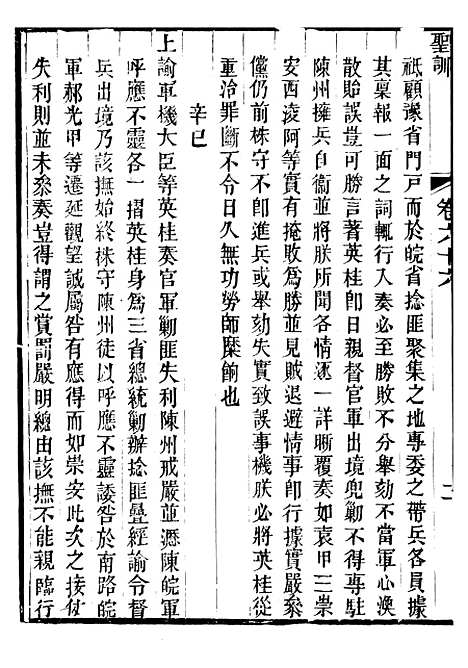 聖訓
卷六十六
二
祗顧豫省門戶而於皖省捻匪聚集之地專委之帶兵各員據
其稟報一面之詞輒行入奏必至勝敗不分舉劾不當軍心渙
散貽誤豈可勝言著英桂卽日親督官軍出境兜勦不得專駐
陳州擁兵自衞並將朕所聞各情逐一詳晰覆奏如袁甲三崇
安西淩阿等實有掩敗為勝並見賊退避情事卽行據實嚴叅
儻仍前株守不卽進兵或舉劾失實致誤事機朕必將英桂從
重治罪斷不令日久無功勞師糜餉也
辛巳
上諭軍機大臣等英桂奏官軍勦匪失利陳州戒嚴並瀝陳皖軍
呼應不靈各一摺英桂身為三省總統勦辦捻匪疊經諭令督
兵出境乃該撫始終株守陳州徒以呼應不靈諉咎於南路皖
軍郝光甲等遷延觀望誠屬咎有應得而如崇安此次之接仗
失利則並未叅奏豈得謂之賞罰嚴明總由該撫不能親臨行